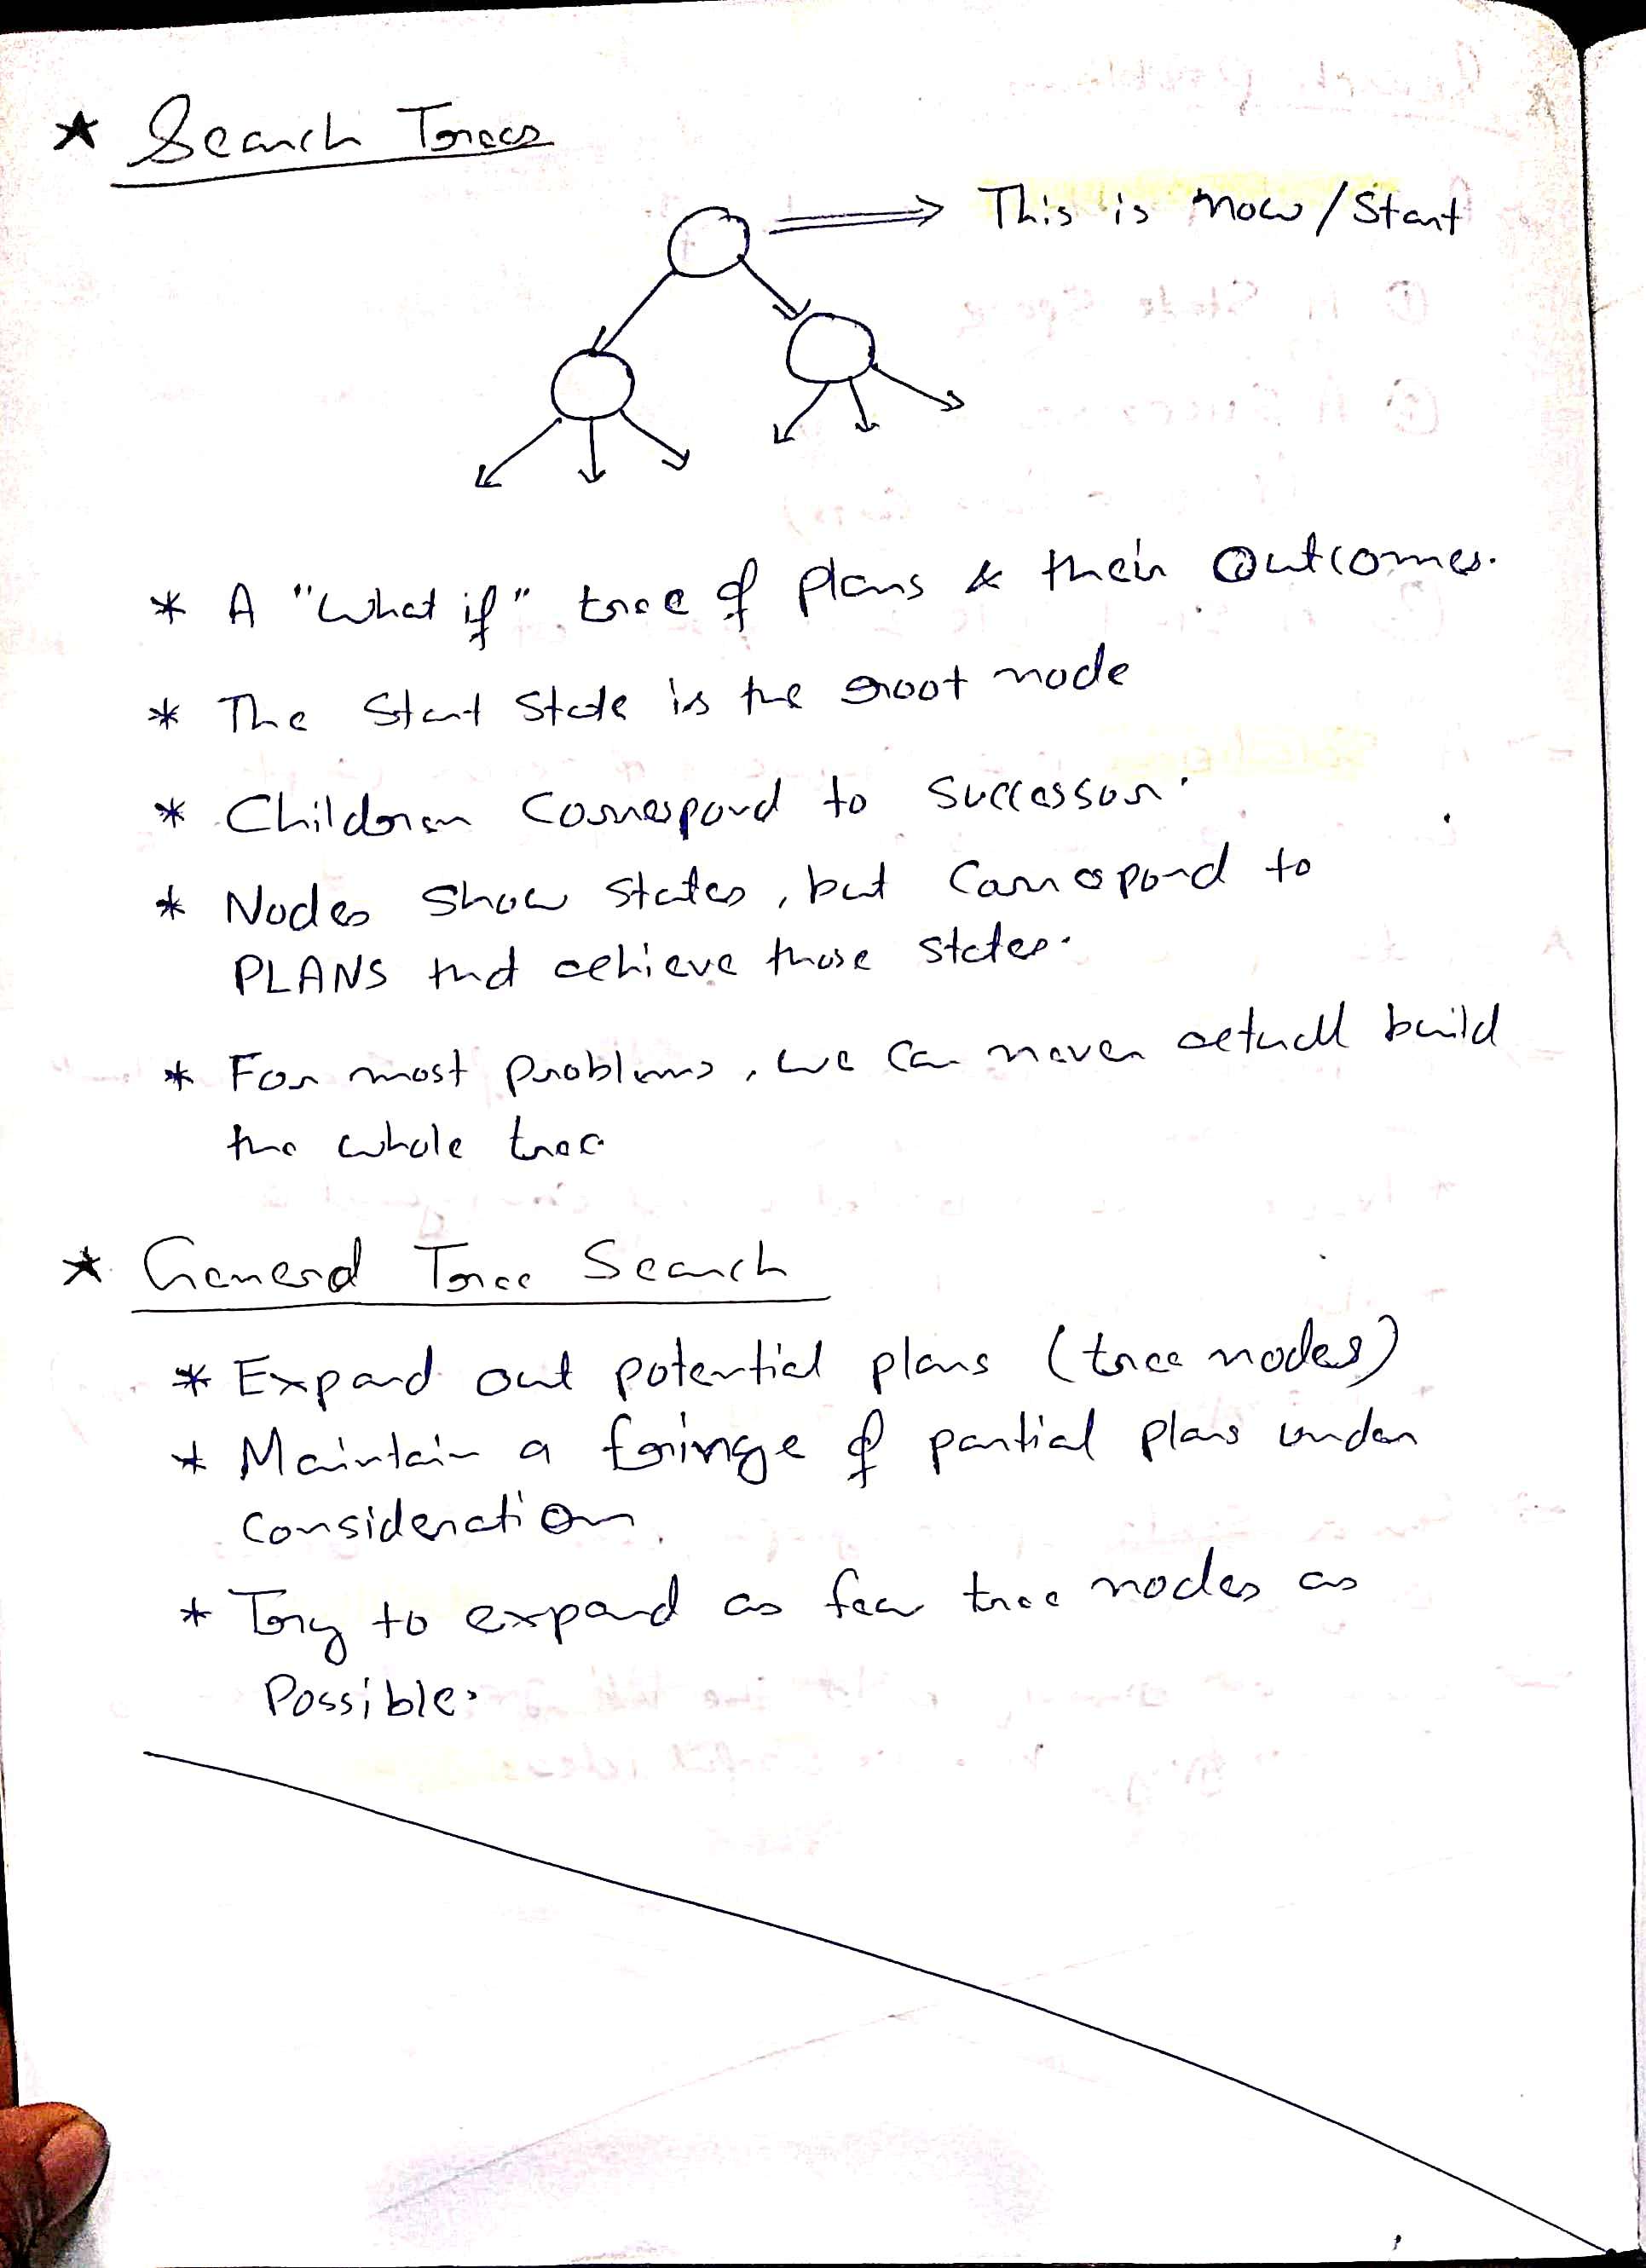 ★ Search Trees
This is now/Start
* A "What if" tree of plans & their Outcomes.
* The Start State is the root node
* Children Correspond to Successor.
* Nodes Show States, but Correspond to
PLANS that achieve those states.
* For most problems, we can never actuall build
the whole tree
★ General Tree Search
* Expand out potential plans (tree nodes)
* Maintain a fringe of partial plans under
Consideration.
* Try to expand as few tree nodes as
Possible.